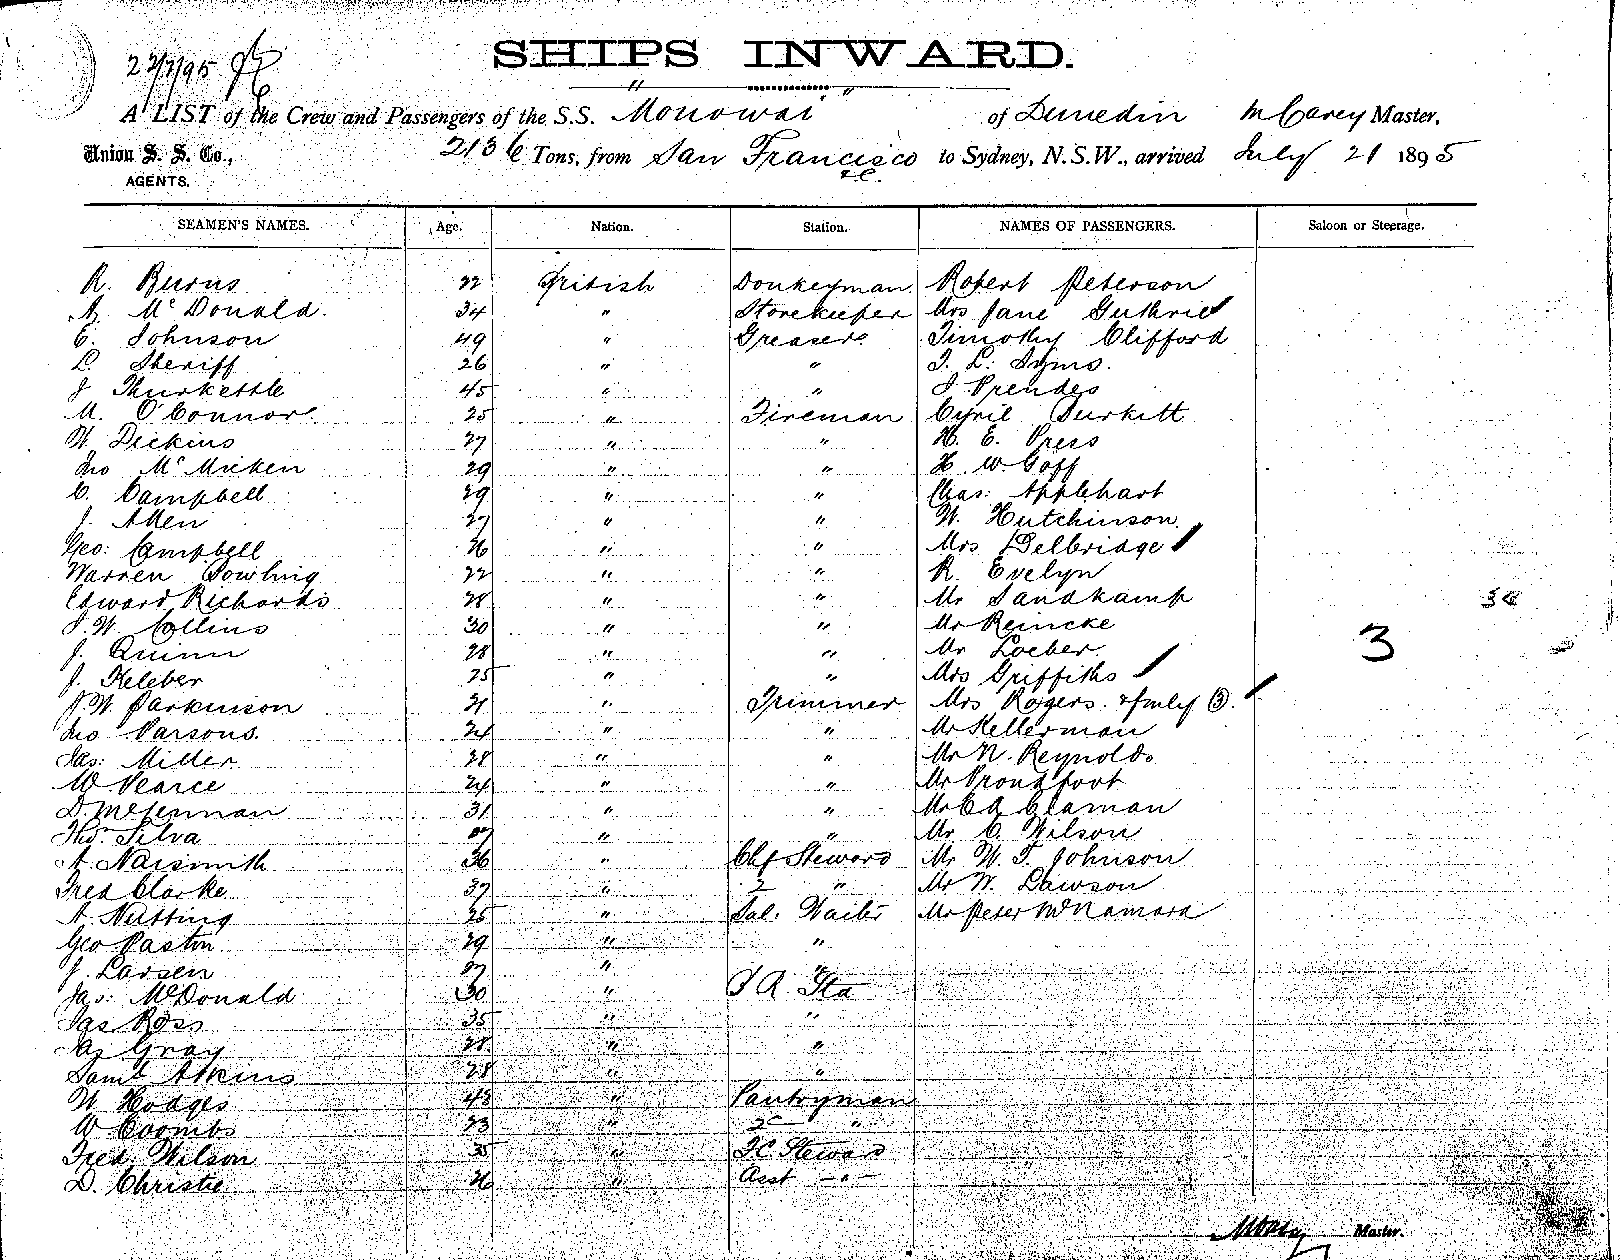 22/7/95
SHIPS INWARD.
A LIST of the Crew and Passengers of the S.S. "Monowai" of Dunedin M Carey Master,
Union S. S. Co., AGENTS. 2136 Tons, from San Francisco &c. to Sydney, N.S.W., arrived July 21 1895
SEAMEN'S NAMES. Age. Nation. Station. NAMES OF PASSENGERS. Saloon or Steerage.
R. Burns 22 British Donkeyman Robert Peterson
A. McDonald. 34 " Storekeeper Mrs Jane Guthrie
C. Johnson 49 " Greasers Timothy Clifford
L. Sheriff 26 " " T. L. Syms.
J Thurkettle 45 " " J. Prendes
M. O'Connor. 25 " Fireman Cyril Burkitt
W. Dickins 27 " " H. E. Press
Jno McMicken 29 " " H. W. Goff
C. Campbell 29 " " Chas: Applehart
J. Allen 27 " " W. Hutchinson.
Geo: Campbell 26 " " Mrs Delbridge
Warren Dowling 22 " " R. Evelyn
Edward Richards 28 " " Mr Sandkamp
J. W. Collins 30 " " Mr Reincke 3
J. Quinn 28 " " Mr Loeber.
J. Keleber 25 " " Mrs Griffiths
J. W. Parkinson 21 " Trimmer Mrs Rogers & fmly (3).
Jno Parsons. 24 " " Mr Kellerman
Jas: Miller 28 " " Mr N. Reynolds
W Pearce 24 " " Mr Proudfoot
D. McLennan 31 " " Mr C A Claman
Thos. Silva " " Mr C. Wilson
A. Naismith 36 " Chf Steward Mr W. T. Johnson
Fred Clarke 37 " 2 " Mr W. Dawson
A. Nutting 25 " Sal: Waiter Mr Peter McNamara
Geo Paston 29 " "
J. Larsen 27 " "
Jas: McDonald 30 "
Jas Ross 35 " "
Jas Gray 28 " "
Saml Atkins 28 " "
W Hodges 43 " Pantryman
W Coombs 23 " 2 "
Fred. Wilson 35 " F.C. Steward
D. Christie 26 " Asst "
Master.